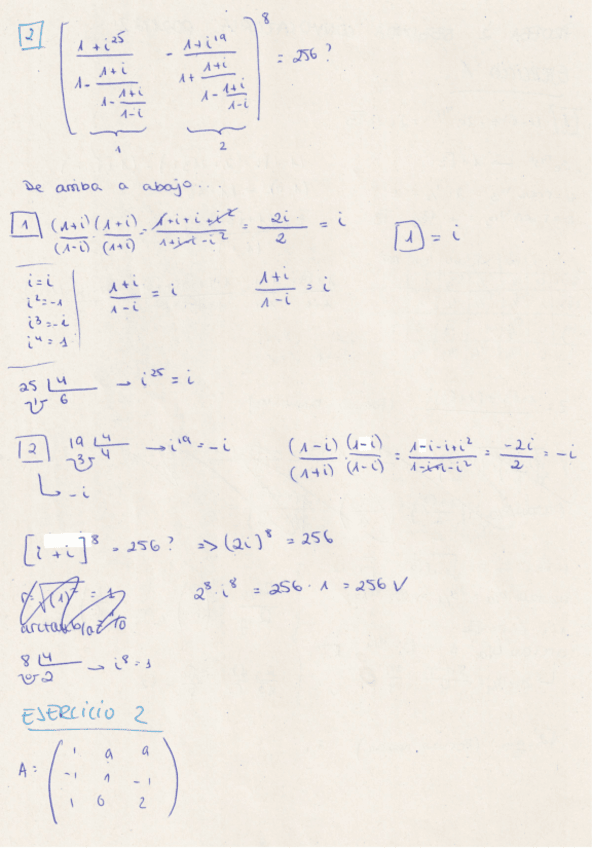 2 [ (1+i^25)/(1-(1+i)/(1-(1+i)/(1-i))) - (1+i^19)/(1+(1+i)/(1-(1+i)/(1-i))) ]^8 = 256?
1 2
De arriba a abajo...
1 (1+i)/(1-i) · (1+i)/(1+i) = (1+i+i+i²)/(1+i-i-i²) = 2i/2 = i 1 = i
i=i
i²=-1
i³=-i
i⁴=1
(1+i)/(1-i) = i (1+i)/(1-i) = i
25 | 4 → i^25 = i
1 6
2 19 | 4 → i^19 = -i (1-i)/(1+i) · (1-i)/(1-i) = (1-i-i+i²)/(1-i+i-i²) = -2i/2 = -i
3 4
↳ -i
[i+i]^8 = 256? => (2i)^8 = 256
2^8 · i^8 = 256 · 1 = 256 √
8 | 4 → i^8 = 1
0 2
EJERCICIO 2
A = ( 1 a a
-1 1 -1
1 0 2 )